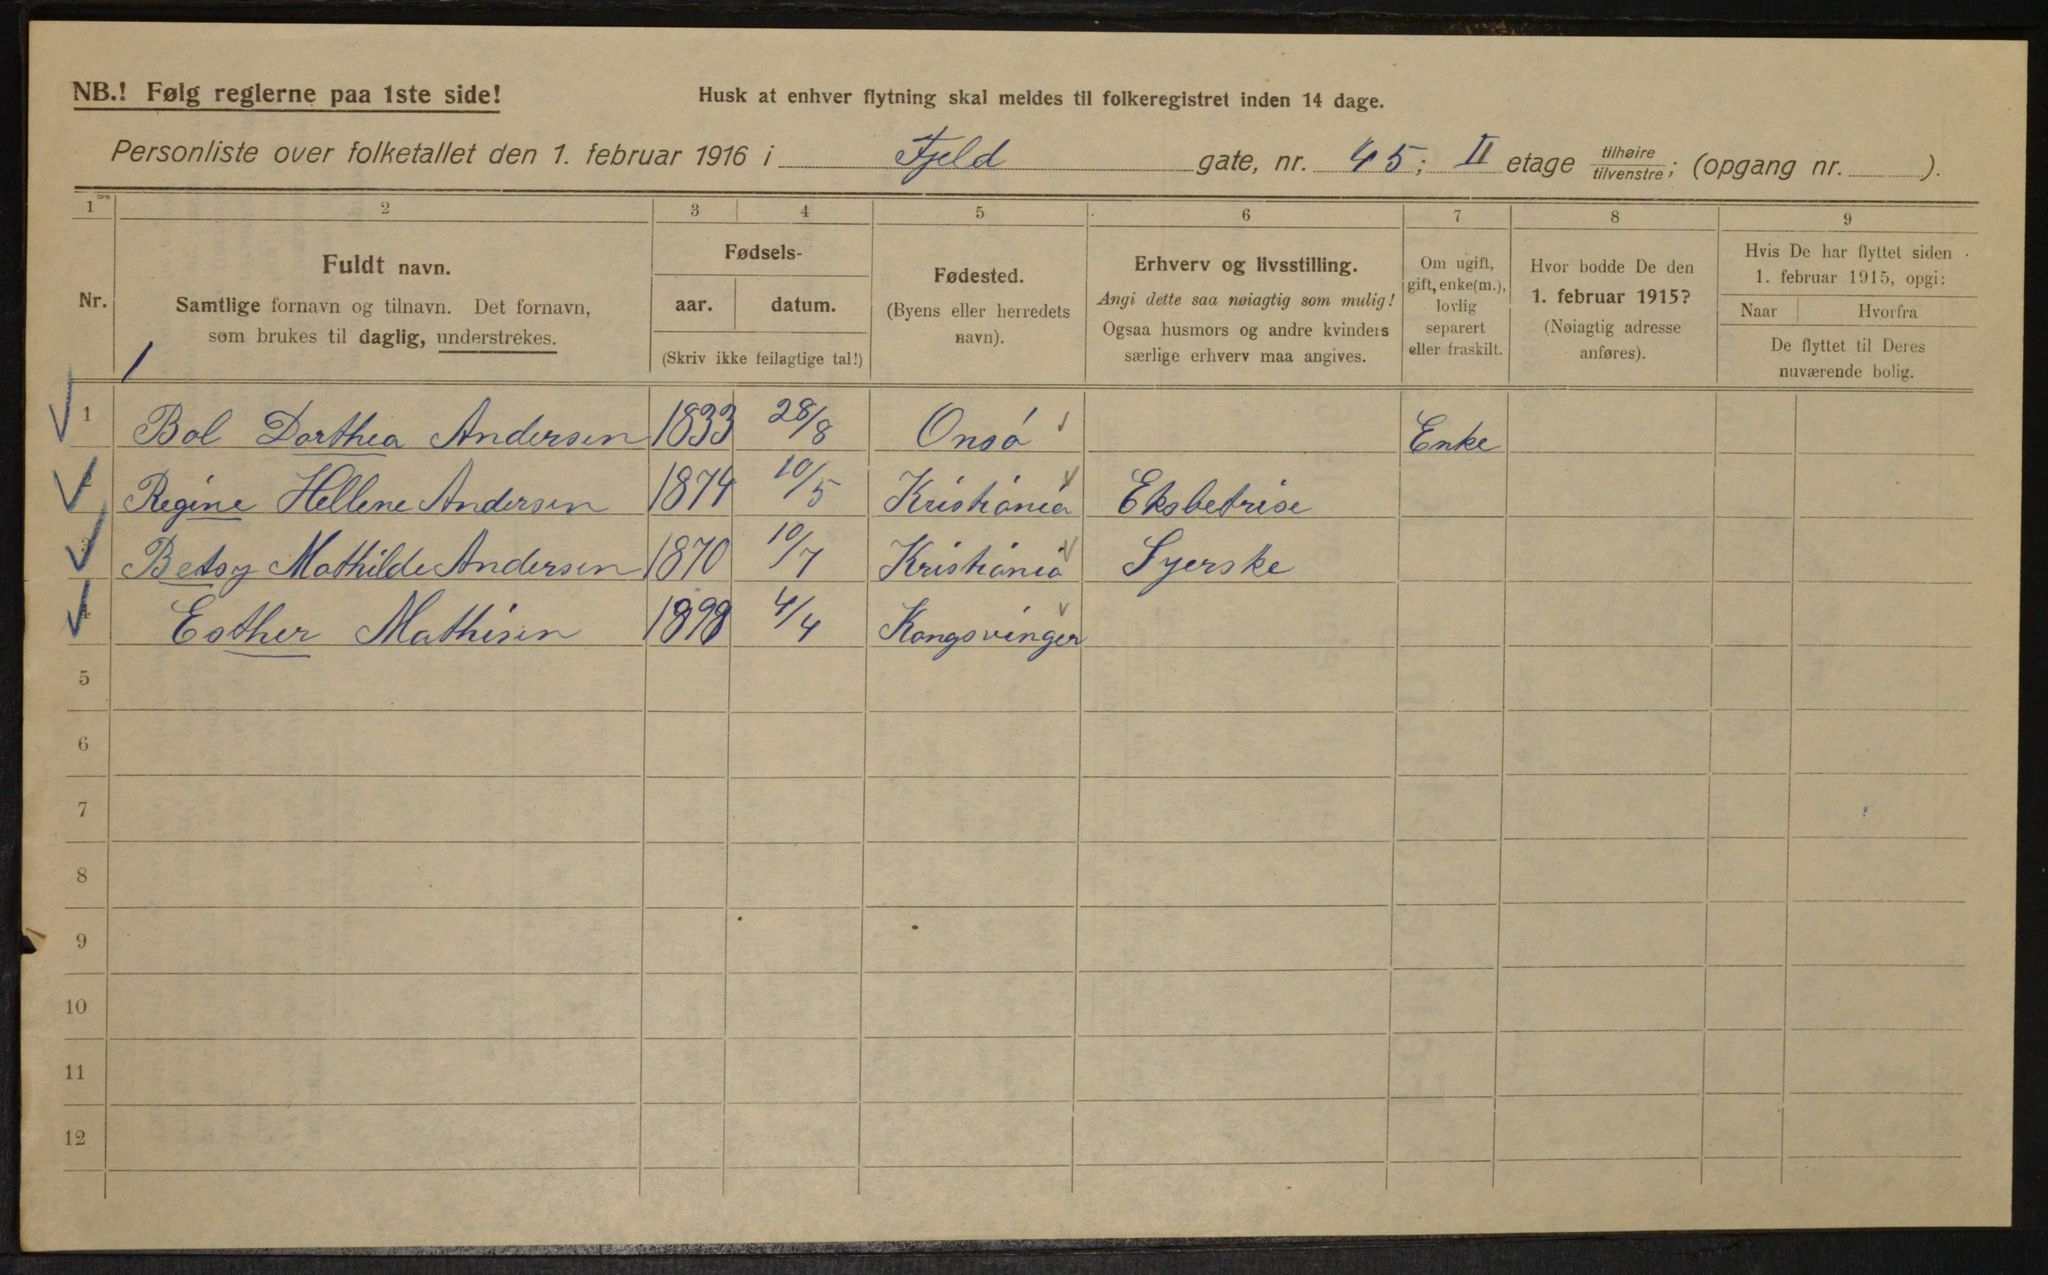 NB.! Følg reglerne paa 1ste side!
Husk at enhver flytning skal meldes til folkeregistret inden 14 dage.
Personliste over folketallet den 1. februar 1916 i Fjeld gate, nr. 45; II etage tilhøire/tilvenstre; (opgang nr. ).
1 2 3 4 5 6 7 8 9
Nr.
Fuldt navn.
Samtlige fornavn og tilnavn. Det fornavn,
som brukes til daglig, understrekes.
Fødsels-
aar. datum.
(Skriv ikke feilagtige tal!)
Fødested.
(Byens eller herredets
navn).
Erhverv og livsstilling.
Angi dette saa nøiagtig som mulig!
Ogsaa husmors og andre kvinders
særlige erhverv maa angives.
Om ugift,
gift, enke(m.),
lovlig
separert
eller fraskilt.
Hvor bodde De den
1. februar 1915?
(Nøiagtig adresse
anføres).
Hvis De har flyttet siden
1. februar 1915, opgi:
Naar Hvorfra
De flyttet til Deres
nuværende bolig.
1
1 Bol Dorthea Andersen 1833 28/8 Onsö Enke
2 Regine Hellene Andersen 1874 10/5 Kristiania Eksbetrise
3 Betsy Mathilde Andersen 1870 10/7 Kristiania Syerske
4 Esther Mathisen 1898 4/4 Kongsvinger
5
6
7
8
9
10
11
12